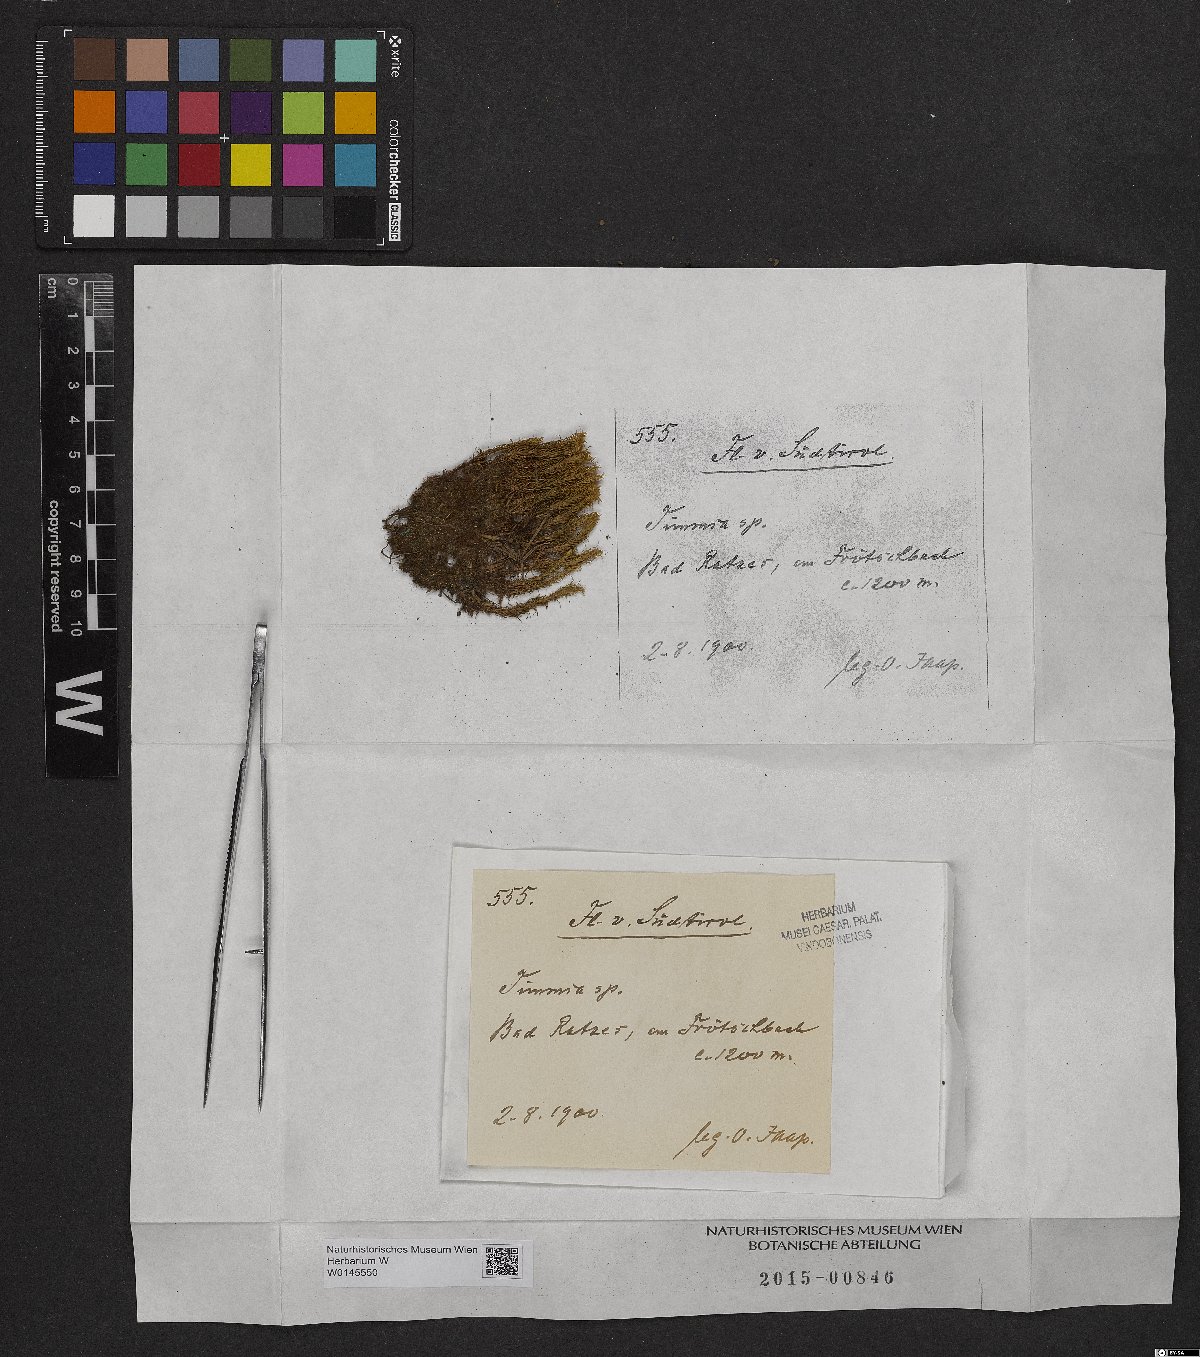 xrite
colorchecker CLASSIC
mm
cm
0 1 2 3 4 5 6 7 8 9 10
copyright reserved
W
555.
Fl. v. Südtirol.
Timmia sp.
Bad Ratzes, am Frötschbach
c. 1200 m.
2. 8. 1900.
leg. O. Jaap.
555.
Fl. v. Südtirol.
Timmia sp.
Bad Ratzes, am Frötschbach
c. 1200 m.
2. 8. 1900
leg. O. Jaap.
HERBARIUM
MUSEI CAESAR. PALAT.
VINDOBONENSIS
NATURHISTORISCHES MUSEUM WIEN
BOTANISCHE ABTEILUNG
2015-00846
Naturhistorisches Museum Wien
Herbarium W
W0145550
BY-SA